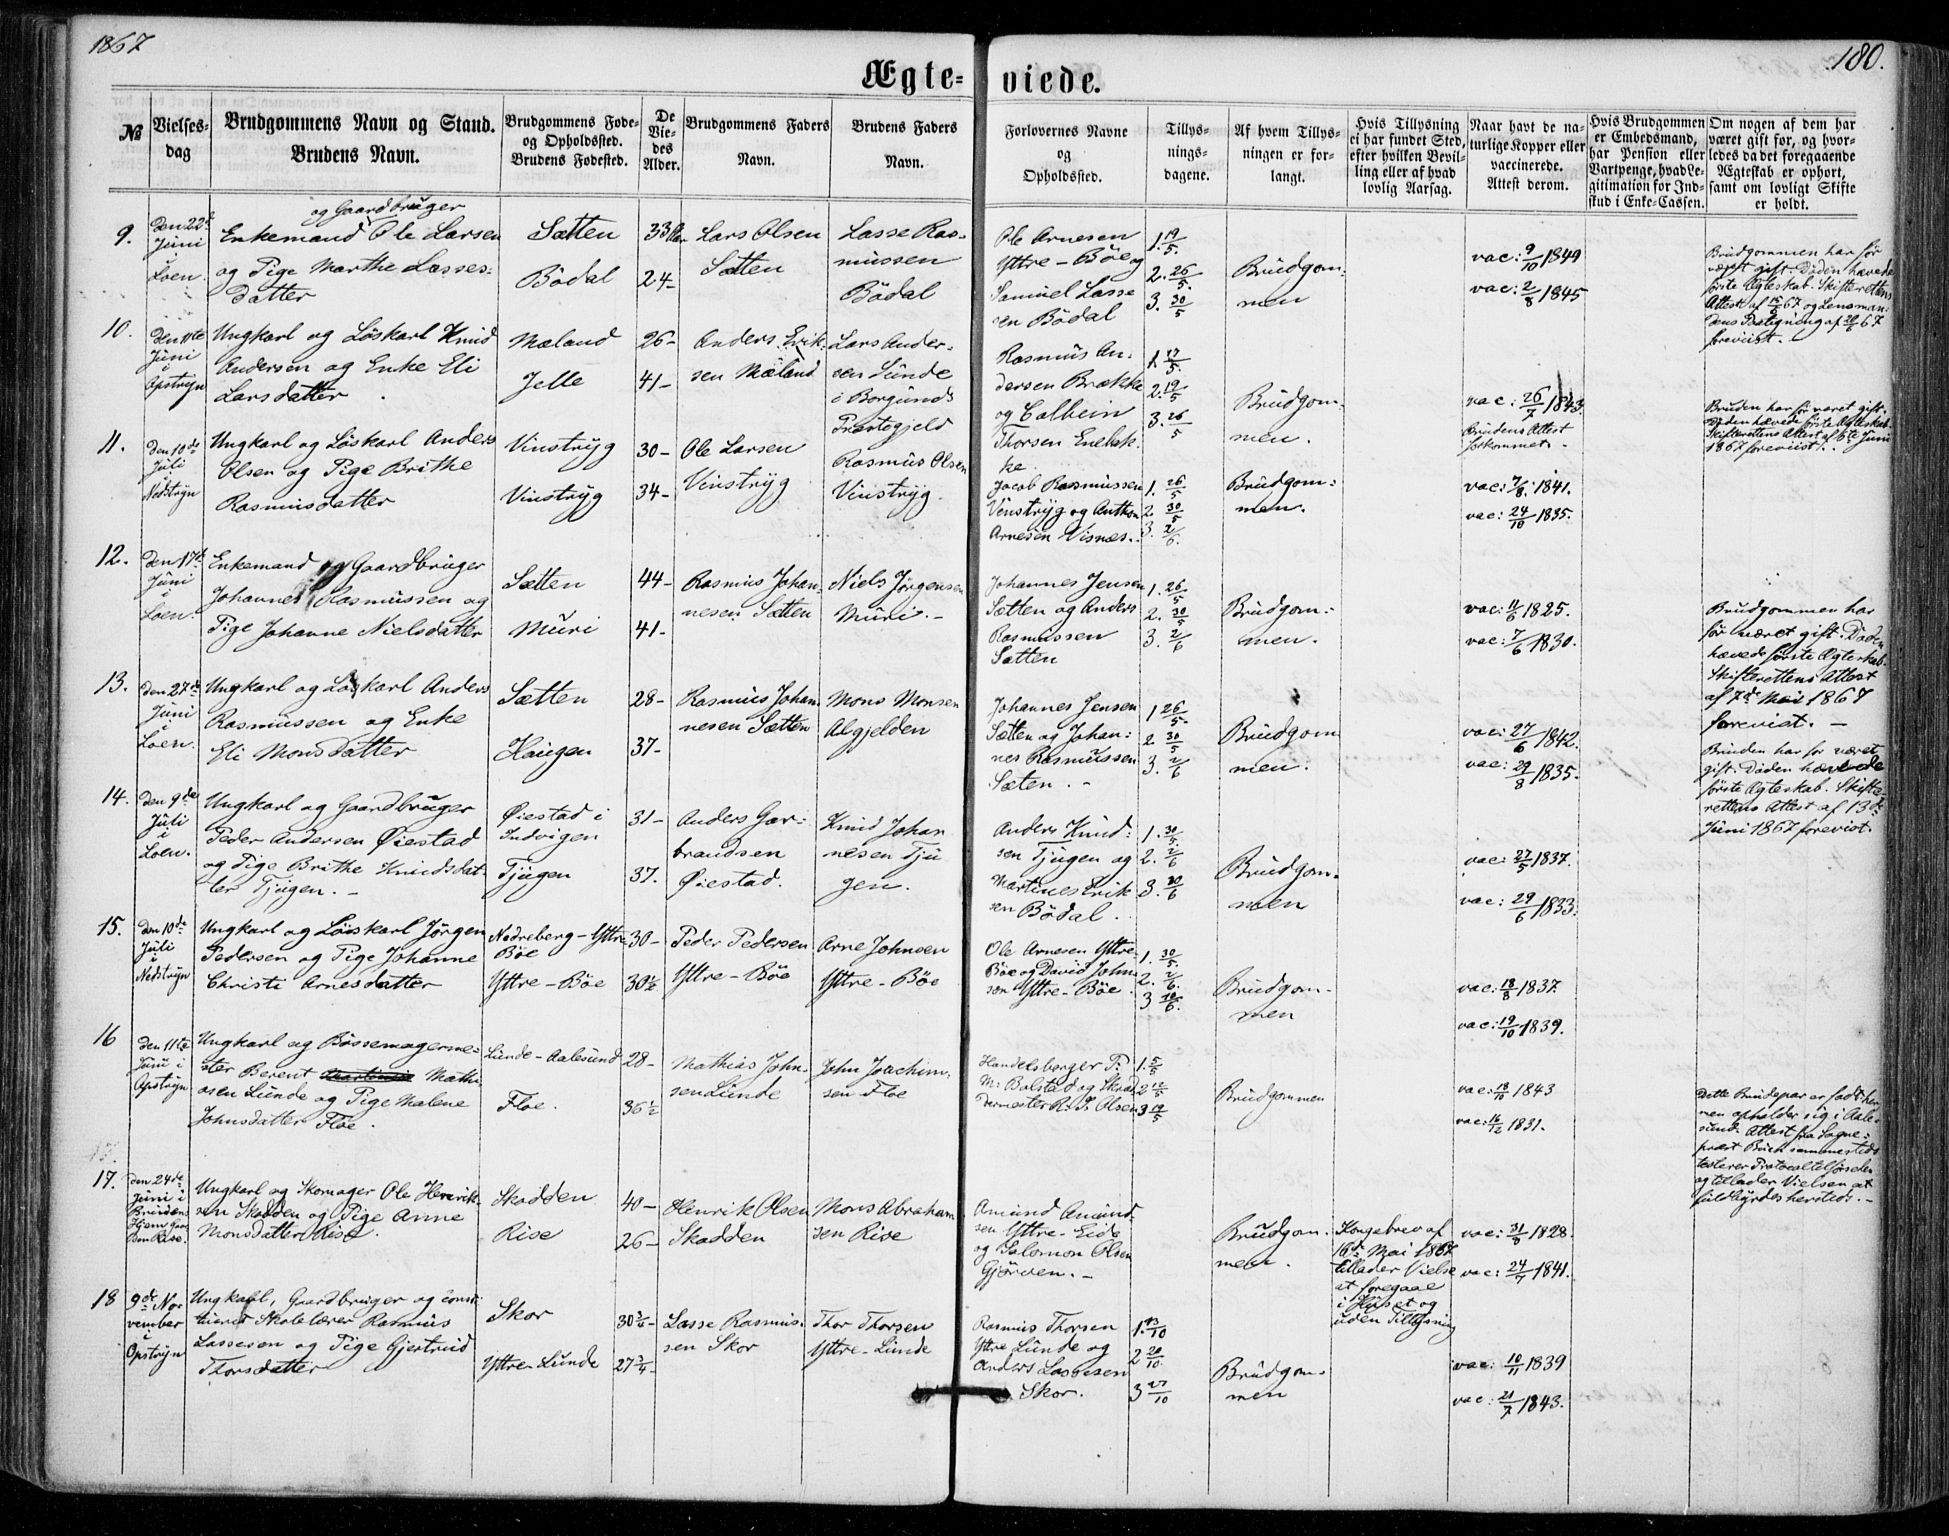 1867
180.
Ægte- viede.
№
Vielses-
dag
Brudgommens Navn og Stand.
Brudens Navn.
Brudgommens Føde-
og Opholdssted.
Brudens Fødested.
De
Vie-
des
Alder.
Brudgommens Faders
Navn.
Brudens Faders
Navn.
Forlovernes Navne
og
Opholdssted.
Tillys-
nings-
dagene.
Af hvem Tillys-
ningen er for-
langt.
Hvis Tillysning
ei har fundet Sted,
efter hvilken Bevil-
ling eller af hvad
lovlig Aarsag.
Naar havt de na-
turlige Kopper eller
vaccinerede.
Attest derom.
Hvis Brudgommen
er Embedsmand,
har Pension eller
Vartpenge, hvad Le-
gitimation for Ind-
skud i Enke-Cassen.
Om nogen af dem har
været gift før, og hvor-
ledes da det foregaaende
Ægteskab er ophørt,
samt om lovligt Skifte
er holdt.
9.
Den 22de
Juni
i
Loen.
og Gaardbruger
Enkemand Ole Larsen
og Pige Marthe Lasses-
datter
Sætten
Bödal
33 Aar
24-
Lars Olsen
Sætten
Lasse Ras-
mussen
Bödal
Ole Arnesen
Yttre-Böe og
Samuel Lasse
sen Bödal
1. 19/5.
2. 26/5.
3. 30/5
Brudgom-
men
vac: 9/10 1849
vac: 2/8 1845
Brudgommen har før
været gift. Døden hævede
første Ægteskab. Skifterettens
Attest af 15/5 67 og Lensman-
dens Paategning af 20/6 67
forevist.
10.
Den 11te
Juni
i
Opstryn
Ungkarl og Löskarl Knud
Andersen og Enke Eli
Larsdatter.
Mæland
Jelle
26-
41-
Anders Erik-
sen Mæland
Lars Ander-
sen Lunde
i Borgunds
Præstegjeld
Rasmus An-
dersen Brække
og Colbein
Thorsen Enebak-
ke.
2. 19/5
3. 26/5
Brudgom-
men.
vac: 26/7 1843.
Brudens Attest
forkommet.
Bruden har før været gift.
Døden hævede første Ægteskab.
Skifterettens Attest af 6te Juni
1867 forevist.
11.
Den 10de
Juli
i
Nedstryn
Ungkarl og Löskarl Anders
Olsen og Pige Brithe
Rasmusdatter
Vinstryg
Vinstryg
30-
34-
Ole Larsen
Vinstryg
Rasmus Olsen
Vinstryg.
Jacob Rasmussen
Vinstryg og Anthon
Arnesen Visnæs.
1. 26/5
2. 30/5
3. 2/6.
Brudgom-
men.
vac: 7/8 1841.
vac: 24/10 1835.
12.
Den 17de
Juni
i
Loen.
Enkemand og Gaardbruger
Johannes Rasmussen og
Pige Johanne Nielsdatter
Sætten
Muri
44-
41-
Rasmus Johan-
nesen Sætten
Niels Jörgensen
Muri.-
Johannes Jensen
Sætten og Anders
Rasmussen
Sætten
1. 26/5
2. 30/5
3. 2/6
Brudgom-
men.
vac: 11/6 1825.
vac: 7/6 1830.
Brudgommen har
før været gift. Døden
hævede første Ægteskab.
Skifterettens Attest
af 7de Mai 1867
forevist.-
13.
Den 27de
Juni
i
Loen.
Ungkarl og Löskarl Anders
Rasmussen og Enke
Eli Monsdatter
Sætten
Haugen
28-
37-
Rasmus Johan
nesen Sætten
Mons Monsen
Algjelden
Johannes Jensen
Sætten og Johan-
nes Rasmussen
Sæten.-
1 26/5.
2 30/5
3. 2/6
Brudgom
men.
vac: 27/6 1842.
vac: 29/8 1835.
Bruden har før været
gift. Døden hævede
første Ægteskab. Skifte-
rettens Attest af 13de
Juni 1867 forevist.
14.
Den 9de
Juli
i
Loen.
Ungkarl og Gaardbruger
Peder Andersen Øiestad
og Pige Brithe Knudsdat-
ter Tjugen.-
Øiestad i
Indvigen
Tjugen
31-
37.
Anders Gar-
brandsen
Øiestad.
Knud Johan
nesen Tju
gen.
Anders Knud-
sen Tjugen og
Martines Erik
sen Bödal.
1. 30/5.
2. 2/6
Brudgom-
men
vac: 27/5 1837.
vac: 29/6 1833.
15.
Den 10de
Juli
i
Nedstryn
Ungkarl og Löskarl Jörgen
Pedersen og Pige Johanne
Christi Arnesdatter
Nedreberg-Yttre
Böe
Yttre-Böe
30-
30½
Peder Pedersen
Yttre-Böe
Arne Johnsen
Yttre-Böe
Ole Arnesen Yttre-
Böe og David John-
sen Yttre-Böe
1. 30/5.
2. 2/6.
3 10/6.
Brudgom-
men
vac: 18/8 1837.
vac: 19/10 1839.
16
Den 11te
Juni i
Opstryn
Ungkarl og Bössemagerme-
ster Berent Mathi
asen Lunde og Pige Malene
Johnsdatter Floe.
Lunde-Aalesund
Floe.
28-
36½
Mathias John-
sen Lunde
John Joachim-
sen Floe
Handelsborger P.
M. Bolstad og Skræd
dermester R. J. Olsen
1. 5/5
2 12/5
3 19/5
Brudgommen
vac: 18/10 1843
vac: 16/12 1831.
Dette Brudepar er født her
men opholder sig i Aale-
sund. Attest fra Sogne-
præst Buch sammesteds
og tillader Vielsen at
fuldbyrdes hersteds.-
17.
Den 24de
Juni i
Brudens
Hjem Gaar
den Rise.
Ungkarl og Skomager Ole Henrik-
sen Skadden og Pige Anne
Monsdatter Rise.
Skadden
Rise
40-
26-
Henrik Olsen
Skadden
Mons Abraham
sen Rise
Amund Amund-
sen Yttre-Eide
og Salomon Olsen
Gjörven.-
Brudgom-
men.
Kongebrev af
16de Mai 1867
tillader Vielse
at foregaae
i Huset og
uden Tillysning
vac: 31/8 1828.
vac: 24/7 1841.
18
9de No-
vember
i
Opstryn
Ungkarl, Gaardbruger og const-
tueret Skolelærer Rasmus
Lassesen og Pige Gjertrud
Thorsdatter
Skor
Yttre-Lunde
30¾-
27¾-
Lasse Rasmus-
sen Skor
Thor Thorsen
Yttre-Lunde
Rasmus Thorsen
Yttre Lunde og
Anders Lassesen
Skor.
1. 13/10
2 20/10.
3 27/10
Brudgom-
men
vac: 10/11 1839
vac: 21/7 1843.